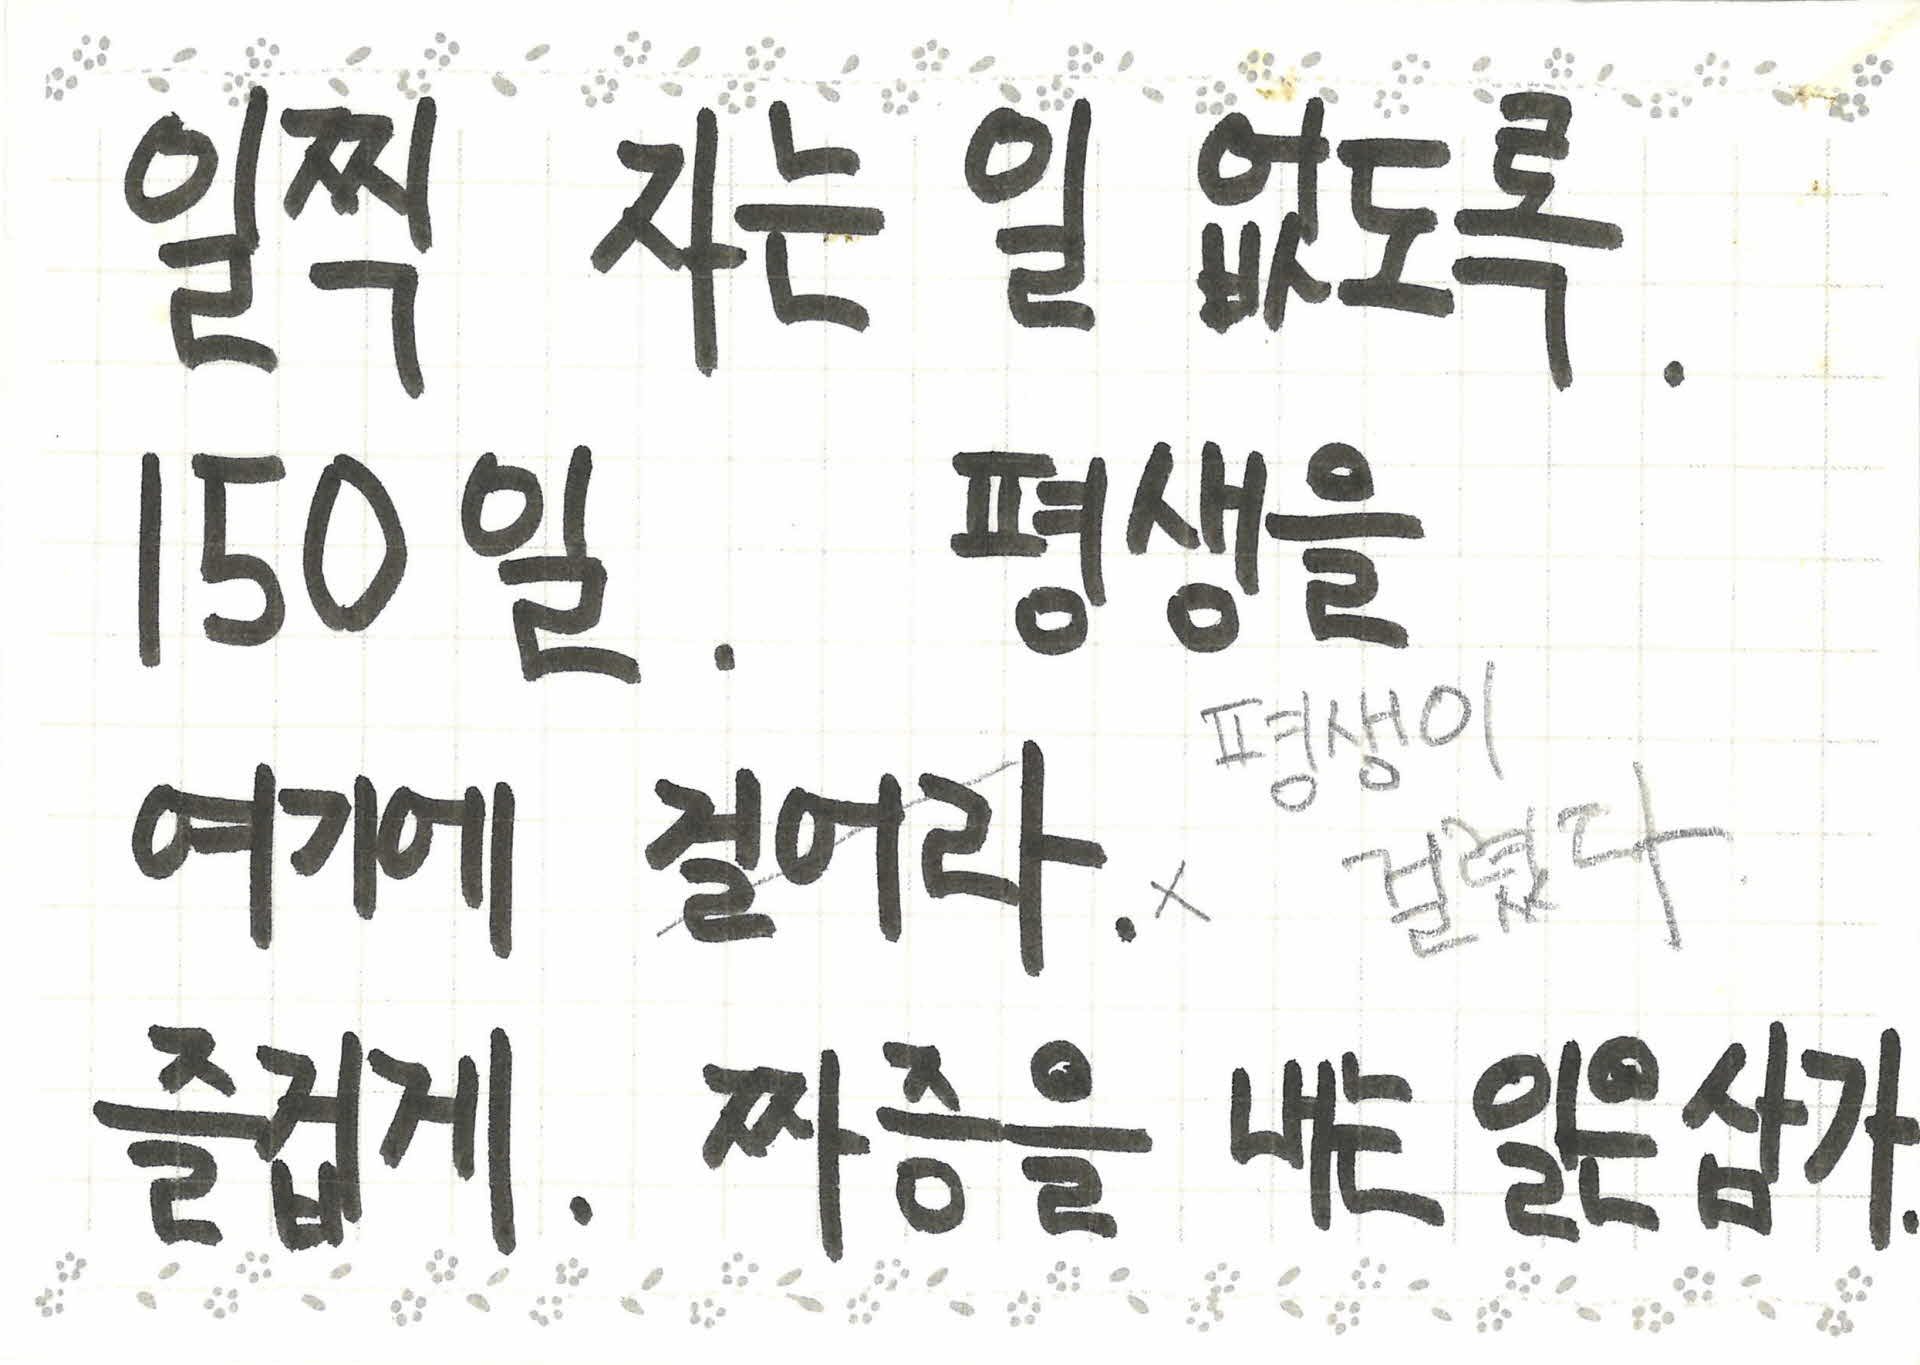 일찍 자는 일 없도록.
150일. 평생을
평생이
여기에 걸어라. x
걸렸다
즐겁게. 짜증을 내는 일은 삼가.